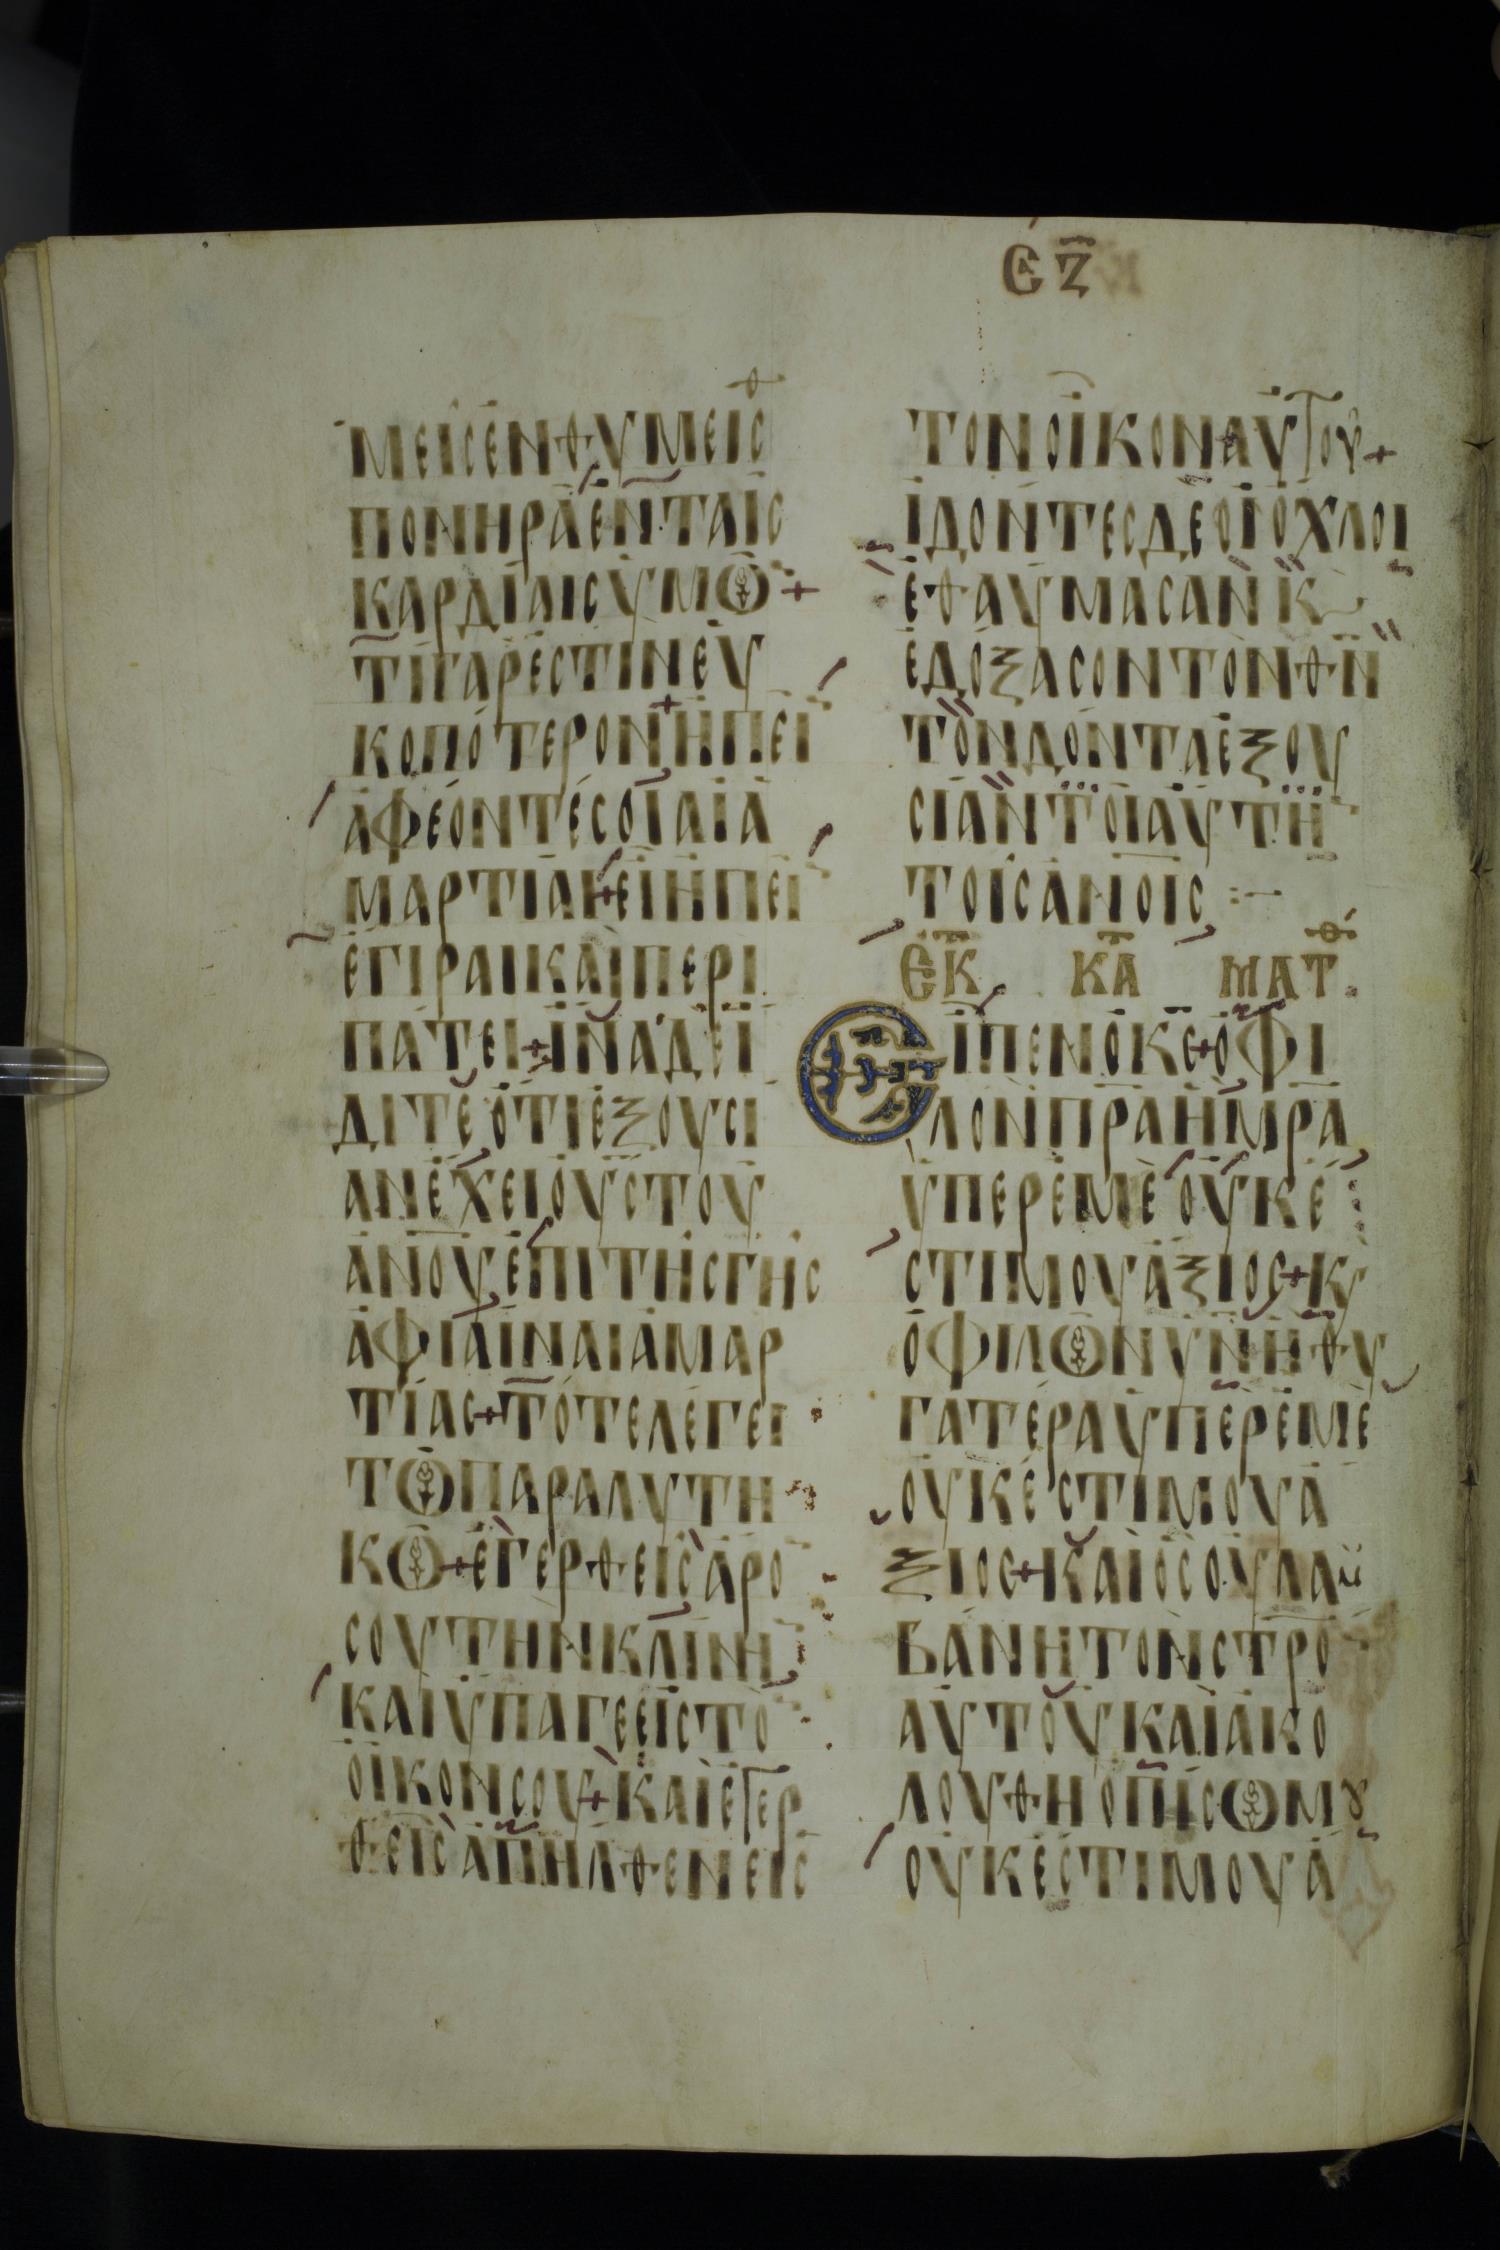 Ε Ζ
ΜΕΙΣΕΝΘΥΜΕΙΣΘ
ΠΟΝΗΡΑΕΝΤΑΙΣ
ΚΑΡΔΙΑΙΣΥΜΩ+
ΤΙΓΑΡΕΣΤΙΝΕΥ
ΚΟΠΟΤΕΡΟΝ+ΗΠΕΙ
ΑΦΕΟΝΤΕΣΟΙΑΙΑ
ΜΑΡΤΙΑΙ+ΕΙΗΠΕΙ
ΕΓΙΡΑΙΚΑΙΠΕΡΙ
ΠΑΤΕΙ+ΙΝΑΔΕΙ
ΔΙΤΕΟΤΙΕΞΟΥΣΙ
ΑΝΕΧΕΙΟΥΣΤΟΥ
ΑΝΟΥΕΠΙΤΗΣΓΗΣ
ΑΦΙΑΙΝΑΙΑΜΑΡ
ΤΙΑΣ+ΤΟΤΕΛΕΓΕΙ
ΤΩΠΑΡΑΛΥΤΗ
ΚΩ+ΕΓΕΡΘΕΙΣΑΡΟ
ΣΟΥΤΗΝΚΛΙΝΗ
ΚΑΙΥΠΑΓΕΕΙΣΤΟ
ΟΙΚΟΝΣΟΥ+ΚΑΙΕΓΕΡ
ΘΕΙΣΑΠΗΛΘΕΝΕΙΣ
ΤΟΝΟΙΚΟΝΑΥΤΟΥ+
ΙΔΟΝΤΕΣΔΕΟΙΟΧΛΟΙ
ΕΘΑΥΜΑΣΑΝΚ
ΕΔΟΞΑΣΟΝΤΟΝΘΝ
ΤΟΝΔΟΝΤΑΕΞΟΥ
ΣΙΑΝΤΟΙΑΥΤΗ
ΤΟΙΣΑΝΟΙΣ :–
ΕΚ ΚΑ ΜΑΤΘ.
ΕΙΠΕΝΟΚΣ+ΟΦΙ
ΛΟΝΠΡΑΗΜΡΑ
ΥΠΕΡΕΜΕΟΥΚΕ
ΣΤΙΜΟΥΑΞΙΟΣ+Κ
ΟΦΙΛΩΝΥΝΗΘΥ
ΓΑΤΕΡΑΥΠΕΡΕΜΕ
ΟΥΚΕΣΤΙΜΟΥΑ
ΞΙΟΣ+ΚΑΙΟΣΟΥΛΑΜ
ΒΑΝΗΤΟΝΣΤΡΟ
ΑΥΤΟΥΚΑΙΑΚΟ
ΛΟΥΘΗΟΠΙΣΩΜȢ
ΟΥΚΕΣΤΙΜΟΥΑ